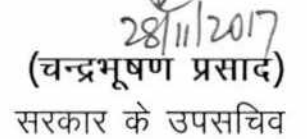 28/11/2017
(चन्द्रभूषण प्रसाद)
सरकार के उपसचिव